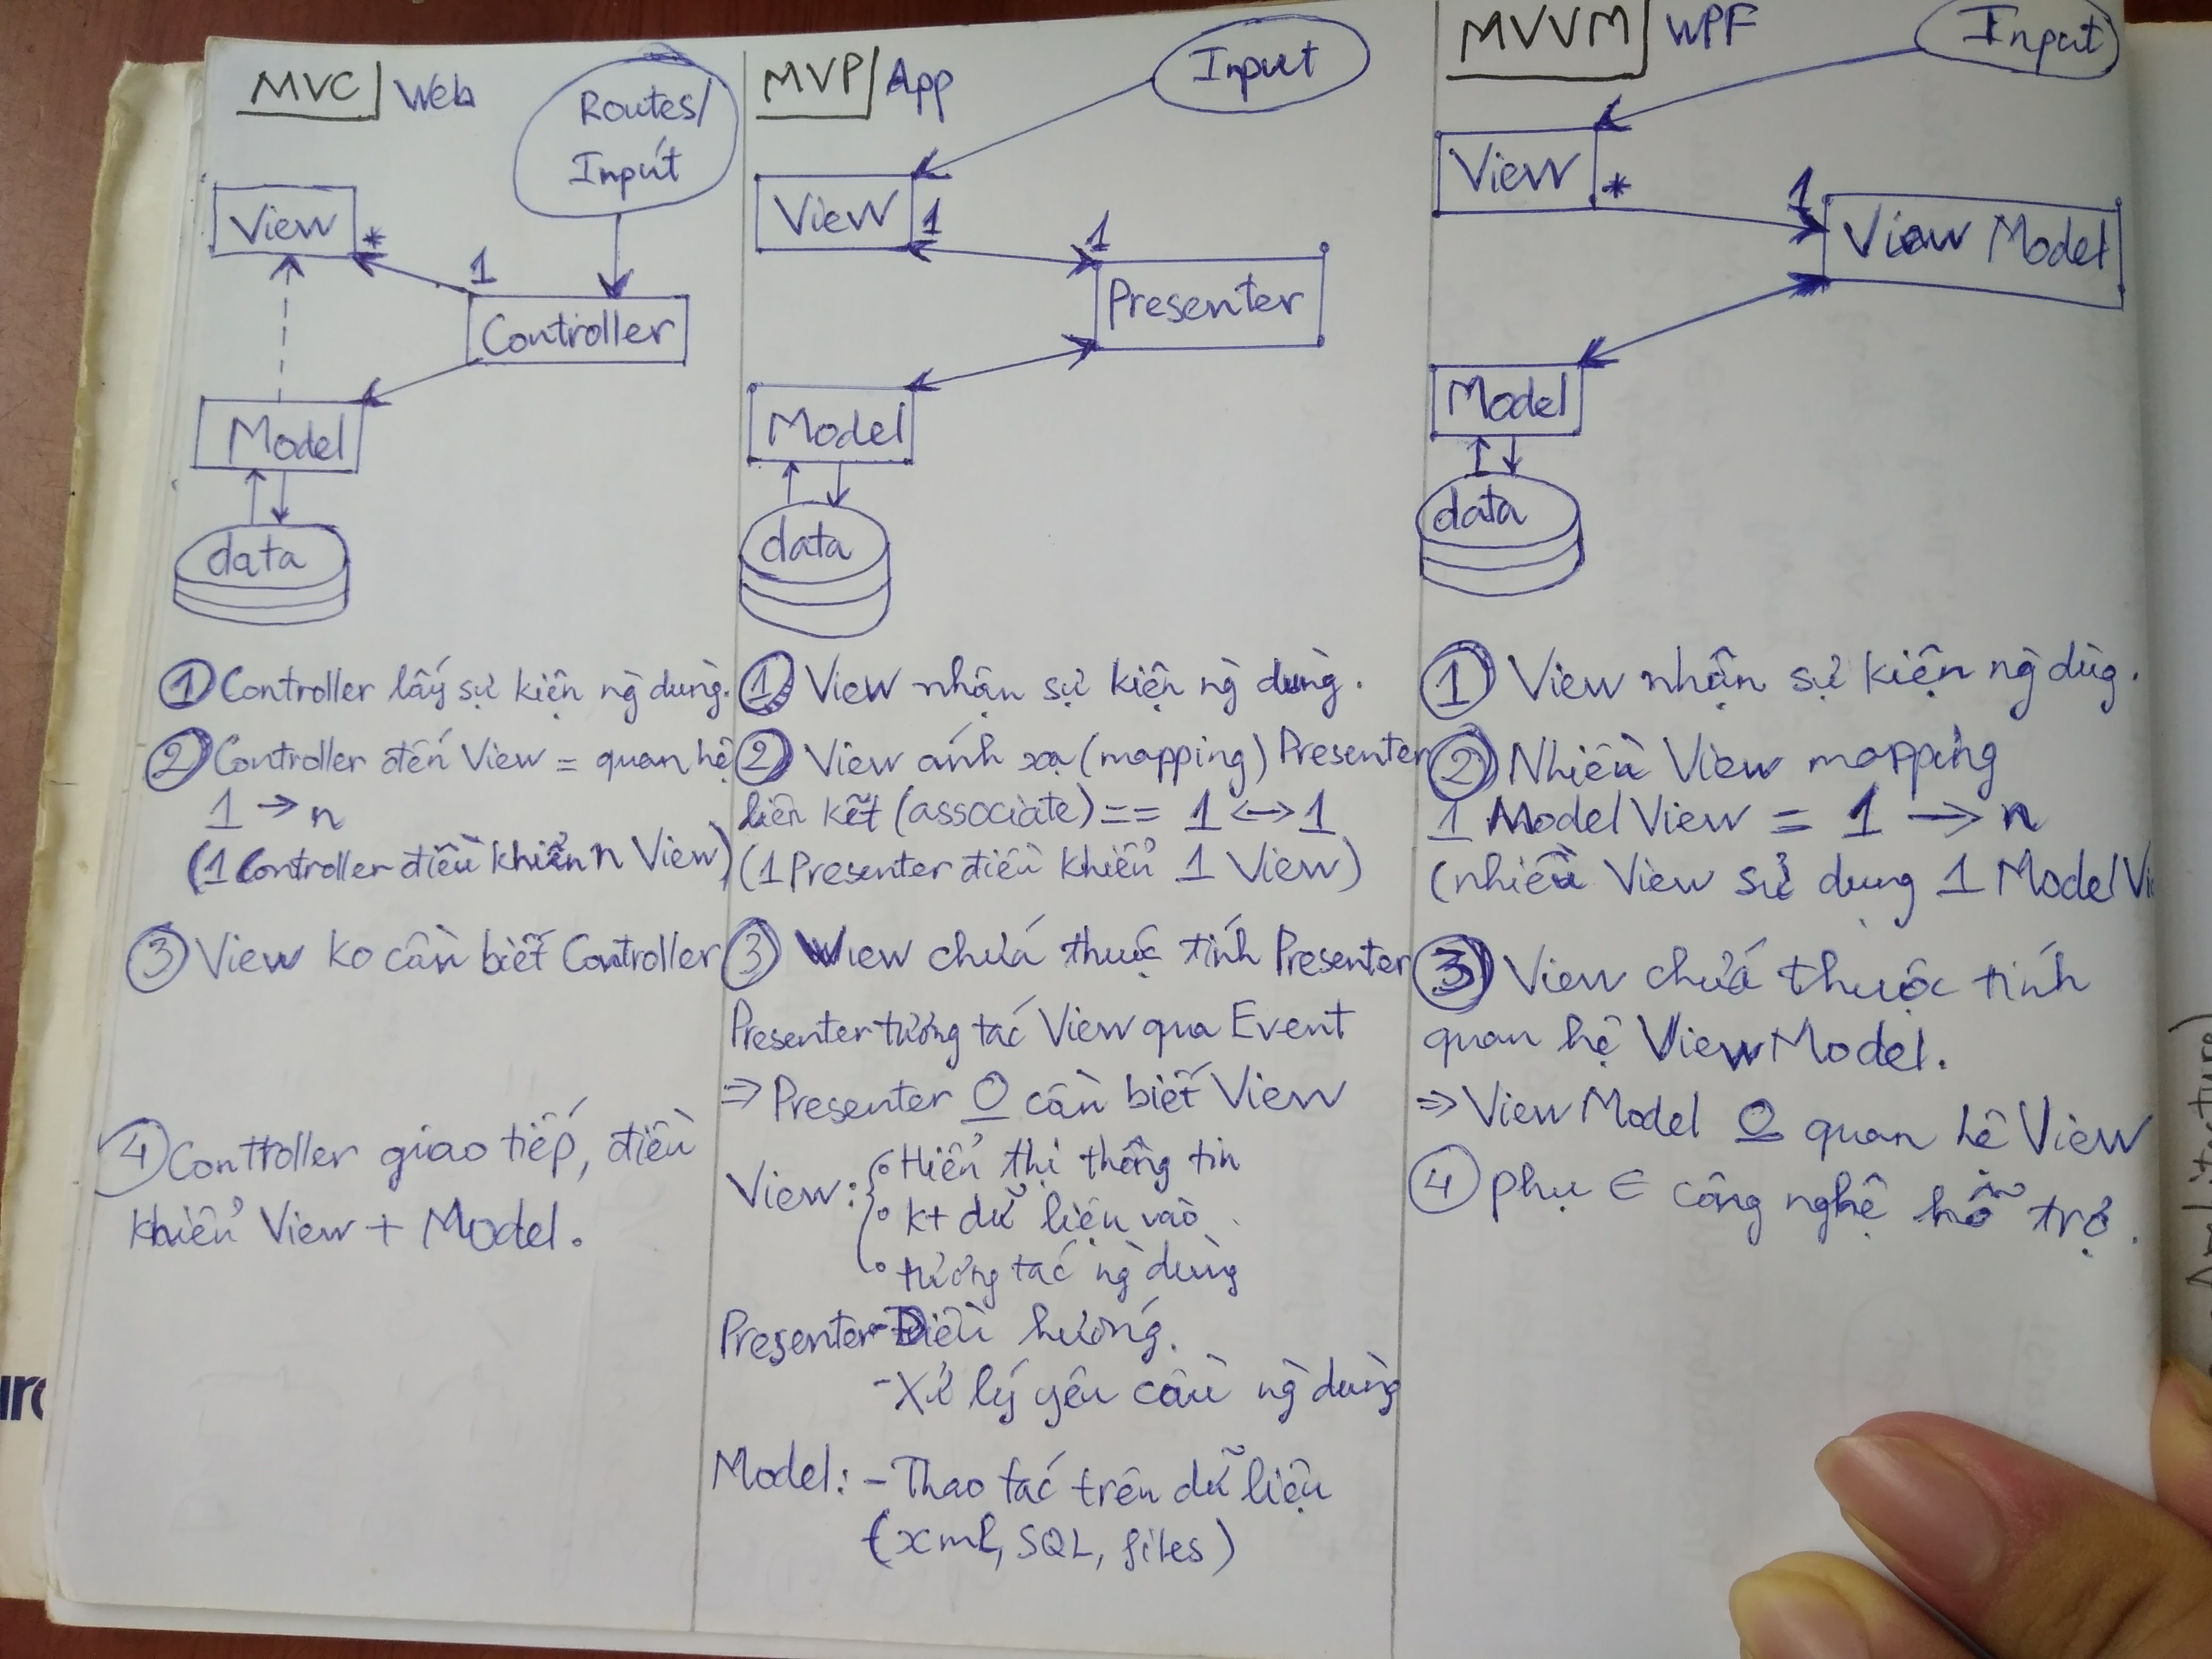 MVC Web
Routes/
Input
View
*
1
Controller
Model
data
① Controller lấy sự kiện ng̀ dùng.
② Controller đến View = quan hệ
1 → n
(1 Controller điều khiển n View)
③ View ko cần biết Controller
④ Controller giao tiếp, điều
khiển View + Model.
MVP App
Input
View
1
1
Presenter
Model
data
① View nhận sự kiện ng̀ dùng.
② View ánh xạ (mapping) Presenter
liên kết (associate) == 1 ↔ 1
(1 Presenter điều khiển 1 View)
③ View chứa thuộc tính Presenter
Presenter tương tác View qua Event
⇒ Presenter O cần biết View
View: Hiển thị thông tin
kt dữ liệu vào
tương tác ng̀ dùng
Presenter - Điều hướng.
- Xử lý yêu cầu ng̀ dùng
Model: - Thao tác trên dữ liệu
(xml, SQL, files)
MVVM WPF
Input
View
*
1
View Model
Model
data
① View nhận sự kiện ng̀ dùg.
② Nhiều View mapping
1 Model View = 1 → n
(nhiều View sử dụng 1 Model Vi
③ View chứa thuộc tính
quan hệ View Model.
⇒ View Model O quan hê View
④ phụ ∈ công nghệ hỗ trợ.